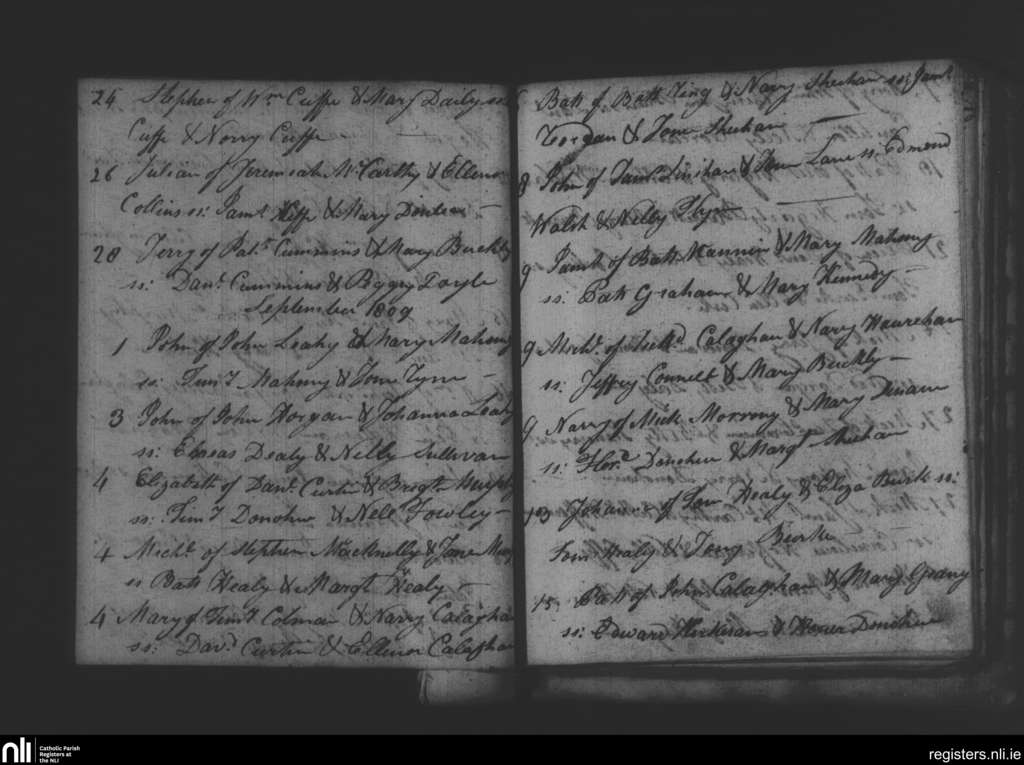 24 Stephen of Wm Cuffe & Mary Daily ss:
Cuffe & Norry Cuffe
26 Julian of Jeremiah McCarthy & Ellenor
Collins ss: Jams Keffe & Mary
28 Jerry of Pat. Cummins & Mary Buckly
ss: Danl Cummins & Peggy Doyle
September 1809
1 John of John Leahy & Mary Mahony
ss: Timy Mahony & Tyne
3 John of John Horgan & Johanna Leahy
ss: Dealy & Nelly Sullivan
4 Elizabeth of Danl Curtin & Brigt Murphy
ss: Timy Donohue & Nelo Fowley
4 Michl of Stephen Macknelly & Jane
ss Batt Healy & Margt Healy
4 Mary of Timy Colman & Narry Calaghan
ss: Davd Curtin & Ellenor Calaghan
Batt of Batt King & Narry Sheehan ss: Jams
& Sheehan
8 John of Jams Linehan & Lane ss: Edmond
Walsh & Nelly
9 Jams of Batt Mannin & Mary Mahony
ss: Patt Graham & Mary Kennedy
9 Michl of Calaghan & Narry Hourehan
ss: Jeffry Connell & Mary Buckly
9 Narry of Mick Morrony & Mary
ss: Flore Donohue & Margt Sheehan
13 Johanna of Healy & Eliza Burk ss:
Healy & Burke
15 Patt of John Calaghan & Mary Geany
ss: Edward & Donohue
nli Catholic Parish
Registers at
the NLI
registers.nli.ie